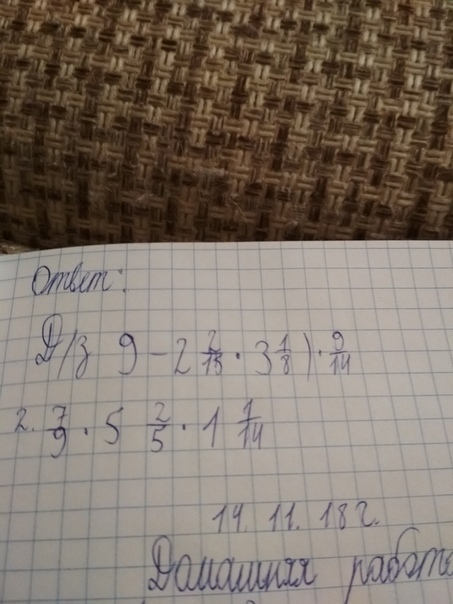 Ответ:
Д/з 9 - 2 2/15 · 3 1/8) · 9/14
2. 7/9 · 5 2/5 · 1 1/14
14. 11. 18 г.
Домашняя работа